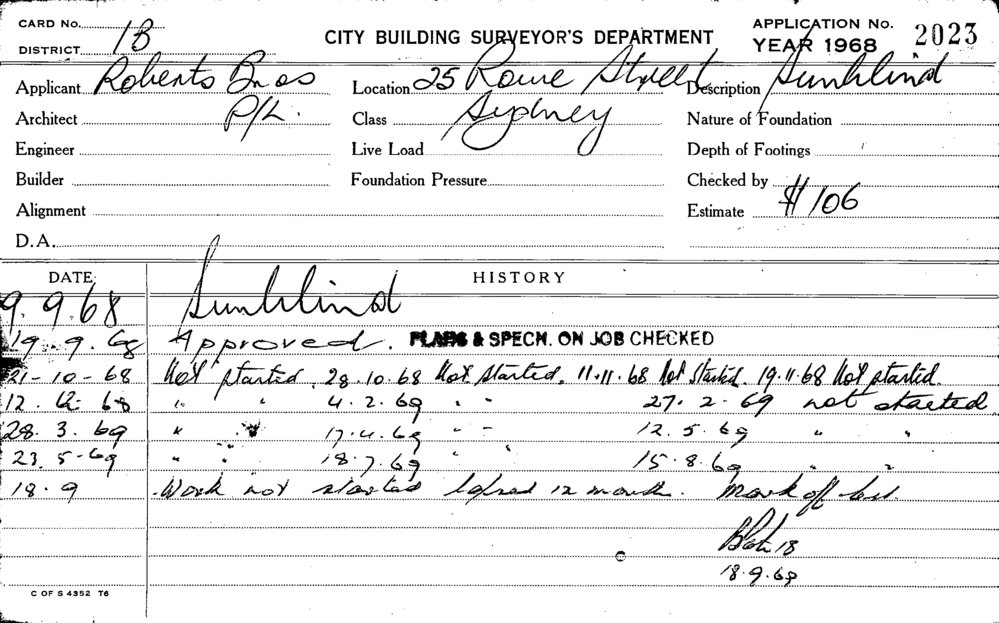 CARD No.
DISTRICT 1B
CITY BUILDING SURVEYOR'S DEPARTMENT
APPLICATION No.
YEAR 1968 2023
Applicant Roberts Bros
Location 25 Rowe Street
Description Sunblind
Architect P/L.
Class Sydney
Nature of Foundation
Engineer
Live Load
Depth of Footings
Builder
Foundation Pressure
Checked by
Alignment
Estimate $106
D.A.
DATE HISTORY
9.9.68 Sunblind
19.9.68 Approved. PLANS & SPECN. ON JOB CHECKED
21-10-68 Not started. 28.10.68 Not started. 11.11.68 Not started. 19.11.68 Not started.
12.12.68 " " 4.2.69 " " 27.2.69 not started
28.3.69 " " 17.4.69 " " 12.5.69 " "
23.5-69 " " 18.7.69 " " 15.8.69 " "
18.9 Work not started lapsed 12 month. Mark off
18
18.9.69
C OF S 4352 T6